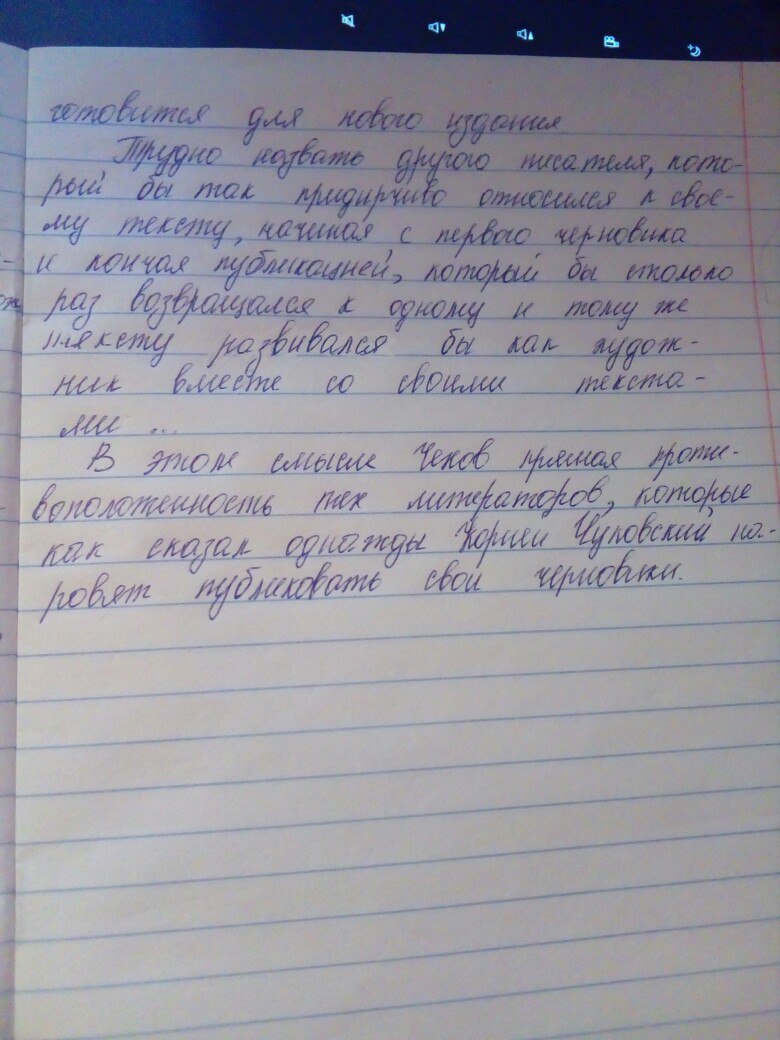 готовится для нового издания
Трудно назвать другого писателя, кото-
рый бы так придирчиво относился к свое-
му тексту, начиная с первого черновика
и кончая публикацией, который бы столько
раз возвращался к одному и тому же
тексту развивался бы как худож-
ник вместе со своими текста-
ми ...
В этом смысле Чехов прямая проти-
воположенность тех литераторов, которые
как сказал однажды Корней Чуковский но-
ровят публиковать свои черновики.